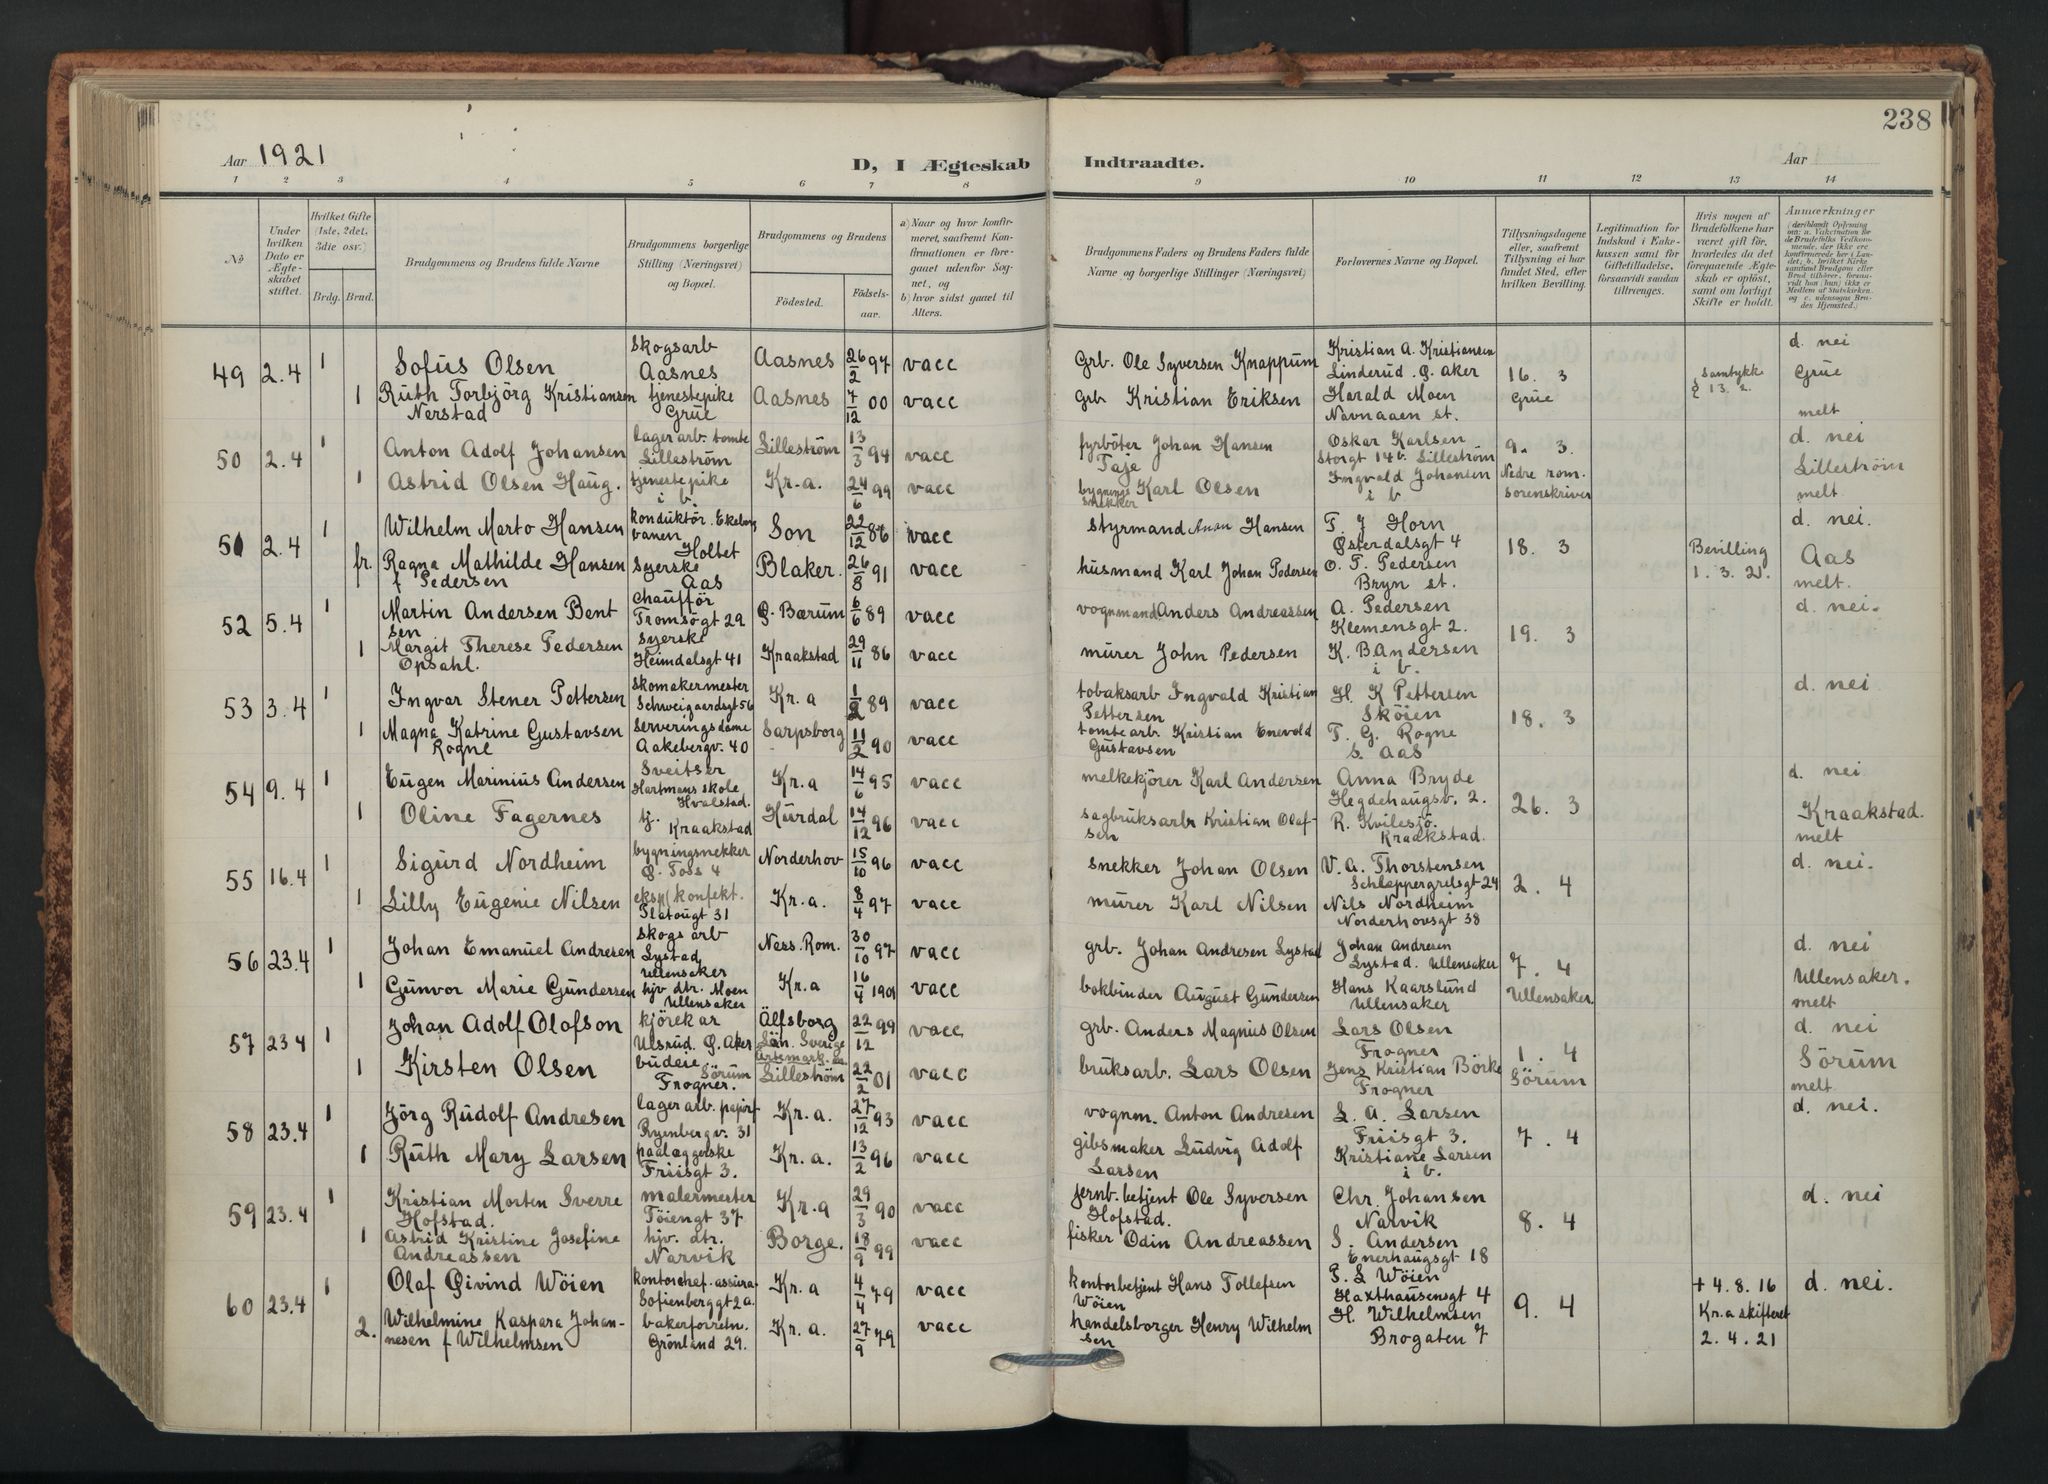 238
Aar 1921
D, I Ægteskab
Indtraadte.
Aar
1 2 3 4 5 6 7 8 9 10 11 12 13 14
No
Under hvilken Dato er Ægteskabet stiftet.
Hvilket Gifte (1ste, 2det, 3die osv.)
Brdg. Brud.
Brudgommens og Brudens fulde Navne
Brudgommens borgerlige Stilling (Næringsvei) og Bopæl.
Brudgommens og Brudens
Födested. Födselsaar.
a) Naar og hvor konfirmeret, saafremt Konfirmationen er foregaaet udenfor Sognet, og
b) hvor sidst gaaet til Alters.
Brudgommens Faders og Brudens Faders fulde Navne og borgerlige Stillinger (Næringsvei)
Forlovernes Navne og Bopæl.
Tillysningsdagene eller, saafremt Tillysning ei har fundet Sted, efter hvilken Bevilling.
Legitimation for Indskud i Enkekassen samt for Giftetilladelse, forsaavidt saadan tiltrænges.
Hvis nogen af Brudefolkene har været gift før, hvorledes da det foregaaende Ægteskab er oplöst, samt om lovligt Skifte er holdt.
Anmærkninger
49 2.4 1 Sofus Olsen skogsarb Aasnes Aasnes 26/2 97 vacc Grb. Ole Syversen Knappum Kristian A. Kristiansen Linderud Ø. Aker 16. 3 Grue samtykke § 13. 2. d. nei Grue melt
1 Ruth Torbjörg Kristiansen Nerstad tjenestepike Grue Aasnes 7/12 00 vacc grb Kristian Eriksen Harald Moen Navnaaen st.
50 2.4 1 Anton Adolf Johansen lagerarb. tomte Lilleström Lilleström 13/3 94 vacc fyrböter Johan Hansen Oskar Karlsen Storgt 14b. Lilleström 9. 3. Nedre rom. sorenskriver d. nei Lilleström melt
1 Astrid Olsen Haug. tjenestepike i b. Kr.a. 24/6 99 vacc bygnings snekker Karl Olsen Ingvald Johansen i b.
51 2.4 1 Wilhelm Marto Hansen konduktör. Ekebergbanen Holtet Son 22/12 86 vacc styrmand Hansen T. J Horn Østerdalsgt 4 18. 3 Bevilling 1. 3. 21. d. nei. Aas melt.
fr. Ragna Mathilde Hansen f Pedersen syerske Aas Blaker. 26/8 91 vacc husmand Karl Johan Pedersen O. T. Pedersen Bryn st.
52 5.4 1 Martin Andersen Bentsen chaufför Tromsögt 29 Ø. Bærum 6/6 89 vacc vognmand Anders Andreassen A. Pedersen Klemensgt 2. 19. 3 d. nei.
1 Margit Therese Pedersen Opsahl. syerske Heimdalsgt 41 Kraakstad 29/11 86 vacc murer John Pedersen K. B Andersen i b.
53 3.4 1 Ingvar Stener Pettersen skomakermester Schweigaardsgt 56 Kr.a 89 vacc tobaksarb Ingvald Kristian Pettersen H. K Pettersen Sköien 18. 3 d. nei
1 Magna Katrine Gustavsen Rogne serveringsdame Aakebergv. 40 Sarpsborg 11/2 90 vacc tomtearb. Kristian Enevold Gustavsen T. G. Rogne S. Aas
54 9.4 1 Eugen Marinius Andersen sveitser Hartmans skole Hvalstad. Kr.a 14/6 95 vacc melkekjörer Karl Andersen Anna Bryde Hegdehaugsv. 2. 26. 3 d. nei Kraakstad. melt
1 Oline Fagernes tj. Kraakstad Hurdal 14/12 96 vacc sagbruksarb Kristian Olafsen R. Kvilesjö. Kraakstad.
55 16.4 1 Sigurd Nordheim bygningsnekker Ø. Foss 4 Norderhov 15/10 96 vacc snekker Johan Olsen V. A. Thorstensen Schleppergrelsgt 24 2. 4 d. nei.
1 Lilly Eugenie Nilsen eksp. konfekt. Platougt 31 Kr.a. 8/4 97 vacc murer Karl Nilsen Nils Nordheim Norderhovsgt 38
56 23.4 1 Johan Emanuel Andresen skogsarb Lystad Ullensaker Ness. Rom. 30/10 97 vacc grb. Johan Andresen Lystad Johan Andresen Lystad. Ullensaker 7. 4 Ullensaker. d. nei Ullensaker. melt
1 Gunvor Marie Gundersen hjv dtr. Moen Ullensaker Kr.a 16/4 1901 vacc bokbinder August Gundersen Hans Kaarslund Ullensaker
57 23 4 1 Johan Adolf Olofson kjörekar Ulsrud. Ø. Aker Älfsborg Län. Sverige 22/12 99 vacc grb. Anders Magnus Olsen Lars Olsen Frogner 1. 4 Sörum d. nei Sörum melt
1 Kirsten Olsen budeie Sörum Frogner. Lilleström 22/2 01 vacc bruksarb. Lars Olsen Jens Kristian Börke Frogner
58 23.4 1 Jörg Rudolf Andresen lagerarb. papirf Ryenbergv. 31 Kr.a. 27/12 93 vacc vognm. Anton Andresen L. A. Larsen Friisgt 3. 7. 4 d. nei.
1 Ruth Mary Larsen paalæggerske Friisgt 3. Kr.a. 13/2 96 vacc gibsmaker Ludvig Adolf Larsen Kristiane Larsen i b.
59 23.4 1 Kristian Morten Sverre Hofstad. malermester Töiengt 37 Kr.a 29/3 90 vacc jernb. betjent Ole Syversen Hofstad. Chr. Johansen Narvik 8. 4 d. nei
1 Astrid Kristine Josefine Andreassen hjv. dtr. Narvik Borge. 18/9 99 vacc fisker Odin Andreassen S. Andersen Enerhaugsgt 18
60 23.4 1 Olaf Øivind Wöien kontorchef. assura. Sofienberggt 2a. Kr.a 4/4 79 vacc kontorbetjent Hans Tollefsen Wöien P. L Wöien Haxthausensgt 4 9. 4 + 4.8.16 Kr.a skifteret 2.4.21 d. nei.
2. Wilhelmine Kaspara Johannesen f Wilhelmsen bakerforretn. Grönland 29. Kr.a. 27/9 79 vacc handelsborger Henry Wilhelmsen H. Wilhelmsen Brogaten 7